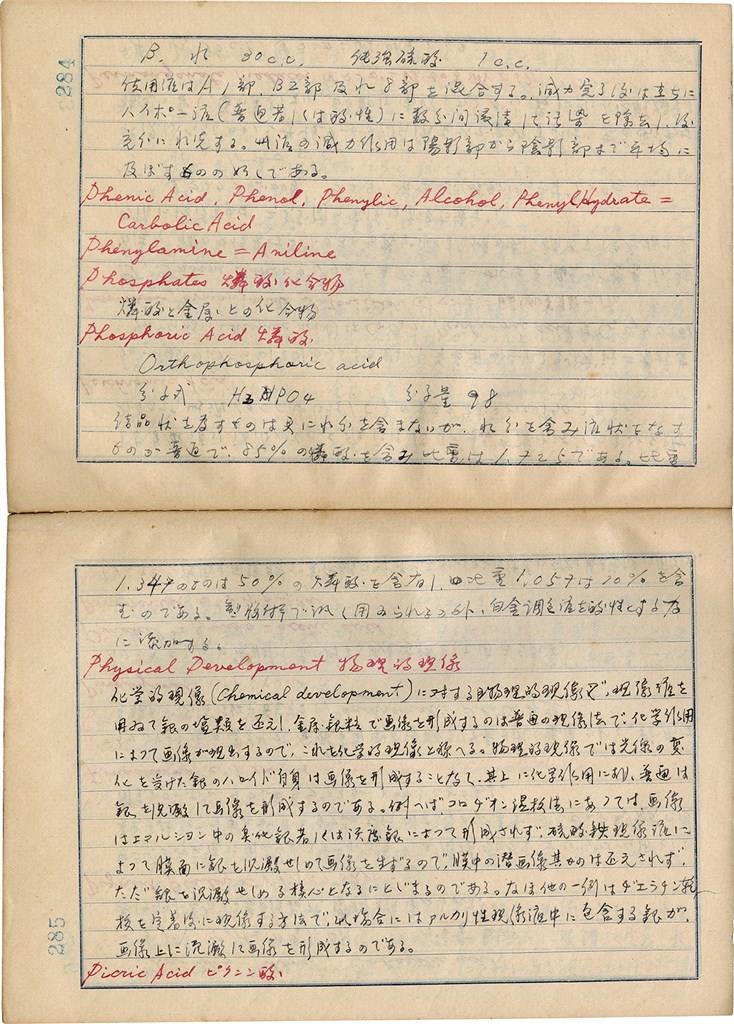 284
B. 水 30 c.c. 化強硫酸 1 c.c.
使用液はA1部、B2部及水8部を混合する。減力完了後は直ちに
ハイポー液(普通若しくは酸性)に数分間浸漬して汚染を除去し、後
充分に水洗する。此液の減力作用は陽影部から陰影部まで平均に
及ぼすものの如しである。
Phenic Acid, Phenol, Phenylic, Alcohol, Phenyl Hydrate =
Carbolic Acid
Phenylamine = Aniline
Phosphates 燐酸化合物
燐酸と金属との化合物
Phosphoric Acid 燐酸
Orthophosphoric acid
分子式 H3PO4 分子量 98
結晶状を為すものは更に水分を含まないが、水分を含み液状をなす
ものが普通で、85%の燐酸を含み比重は1.725である。比重
1.347のものは50%の燐酸を含有し、比重1.057は10%を含
むのである。製版材料で以て用ゐられる以外、白金調色液を酸性とする為
に添加する。
Physical Development 物理的現像
化学的現像(Chemical development)に対する物理的現像で、現像液を
用ゐて銀の塩類を還元し、金属銀粒で画像を形成するのは普通の現像法で、化学作用
によつて画像が現出するので、これを化学的現像と称へる。物理的現像では光線の変
化を受けた銀のハロイド自身は画像を形成することなく、其上に化学作用に則り、普通は
銀を沈澱して画像を形成するのである。例へばコロヂオン湿板法にあつては、画像
はエマルション中の臭化銀若しくは沃度銀によつて形成されず、硫酸鉄現像液に
よつて膜面に銀を沈澱せしめて画像を生ずるので、膜中の潜画像其ものは還元されず、
ただ銀を沈澱せしめる核心となるにとどまるのである。なほ他の一例はゼラチン乾
板を定着後に現像する方法で、此場合にはアルカリ性現像液中に包含する銀が、
画像上に沈澱して画像を形成するのである。
Picric Acid ピクリン酸
285